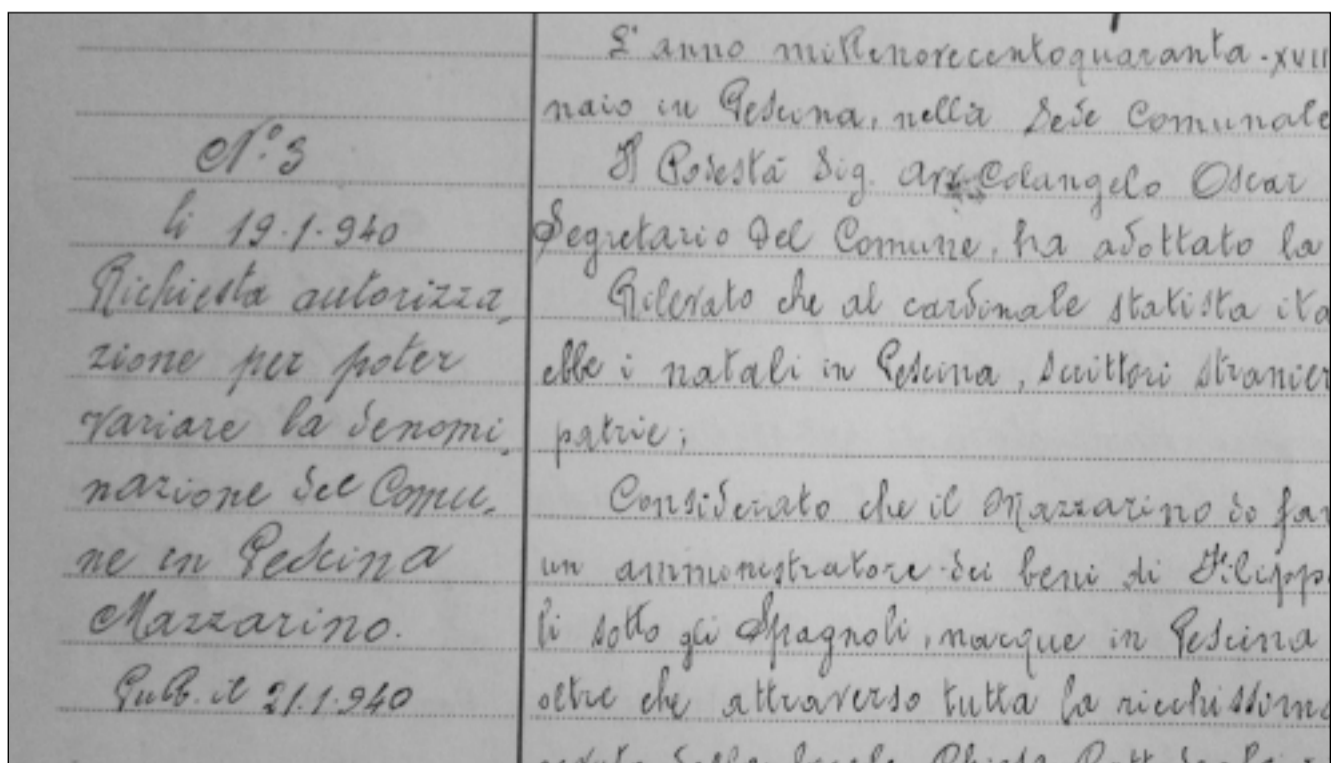 N.° 3
li 19.1.940
Richiesta autorizza,
zione per poter
variare la denomi,
nazione del Comu,
ne in Pescina
Mazzarino.
Pubb. il 21.1.940
L'anno millenovecentoquaranta-XVIII
naio in Pescina, nella Sede Comunale
Il Podestà Sig. Colangelo Oscar
Segretario del Comune, ha adottato la
Rilevato che al cardinale statista ita
ebbe i natali in Pescina, scrittori stranier
patrie;
Considerato che il Mazzarino do fa
un amministratore dei beni di Filipp
li sotto gli Spagnoli, nacque in Pescina
oltre che attraverso tutta la ricchissima
dalla locale Chiesa